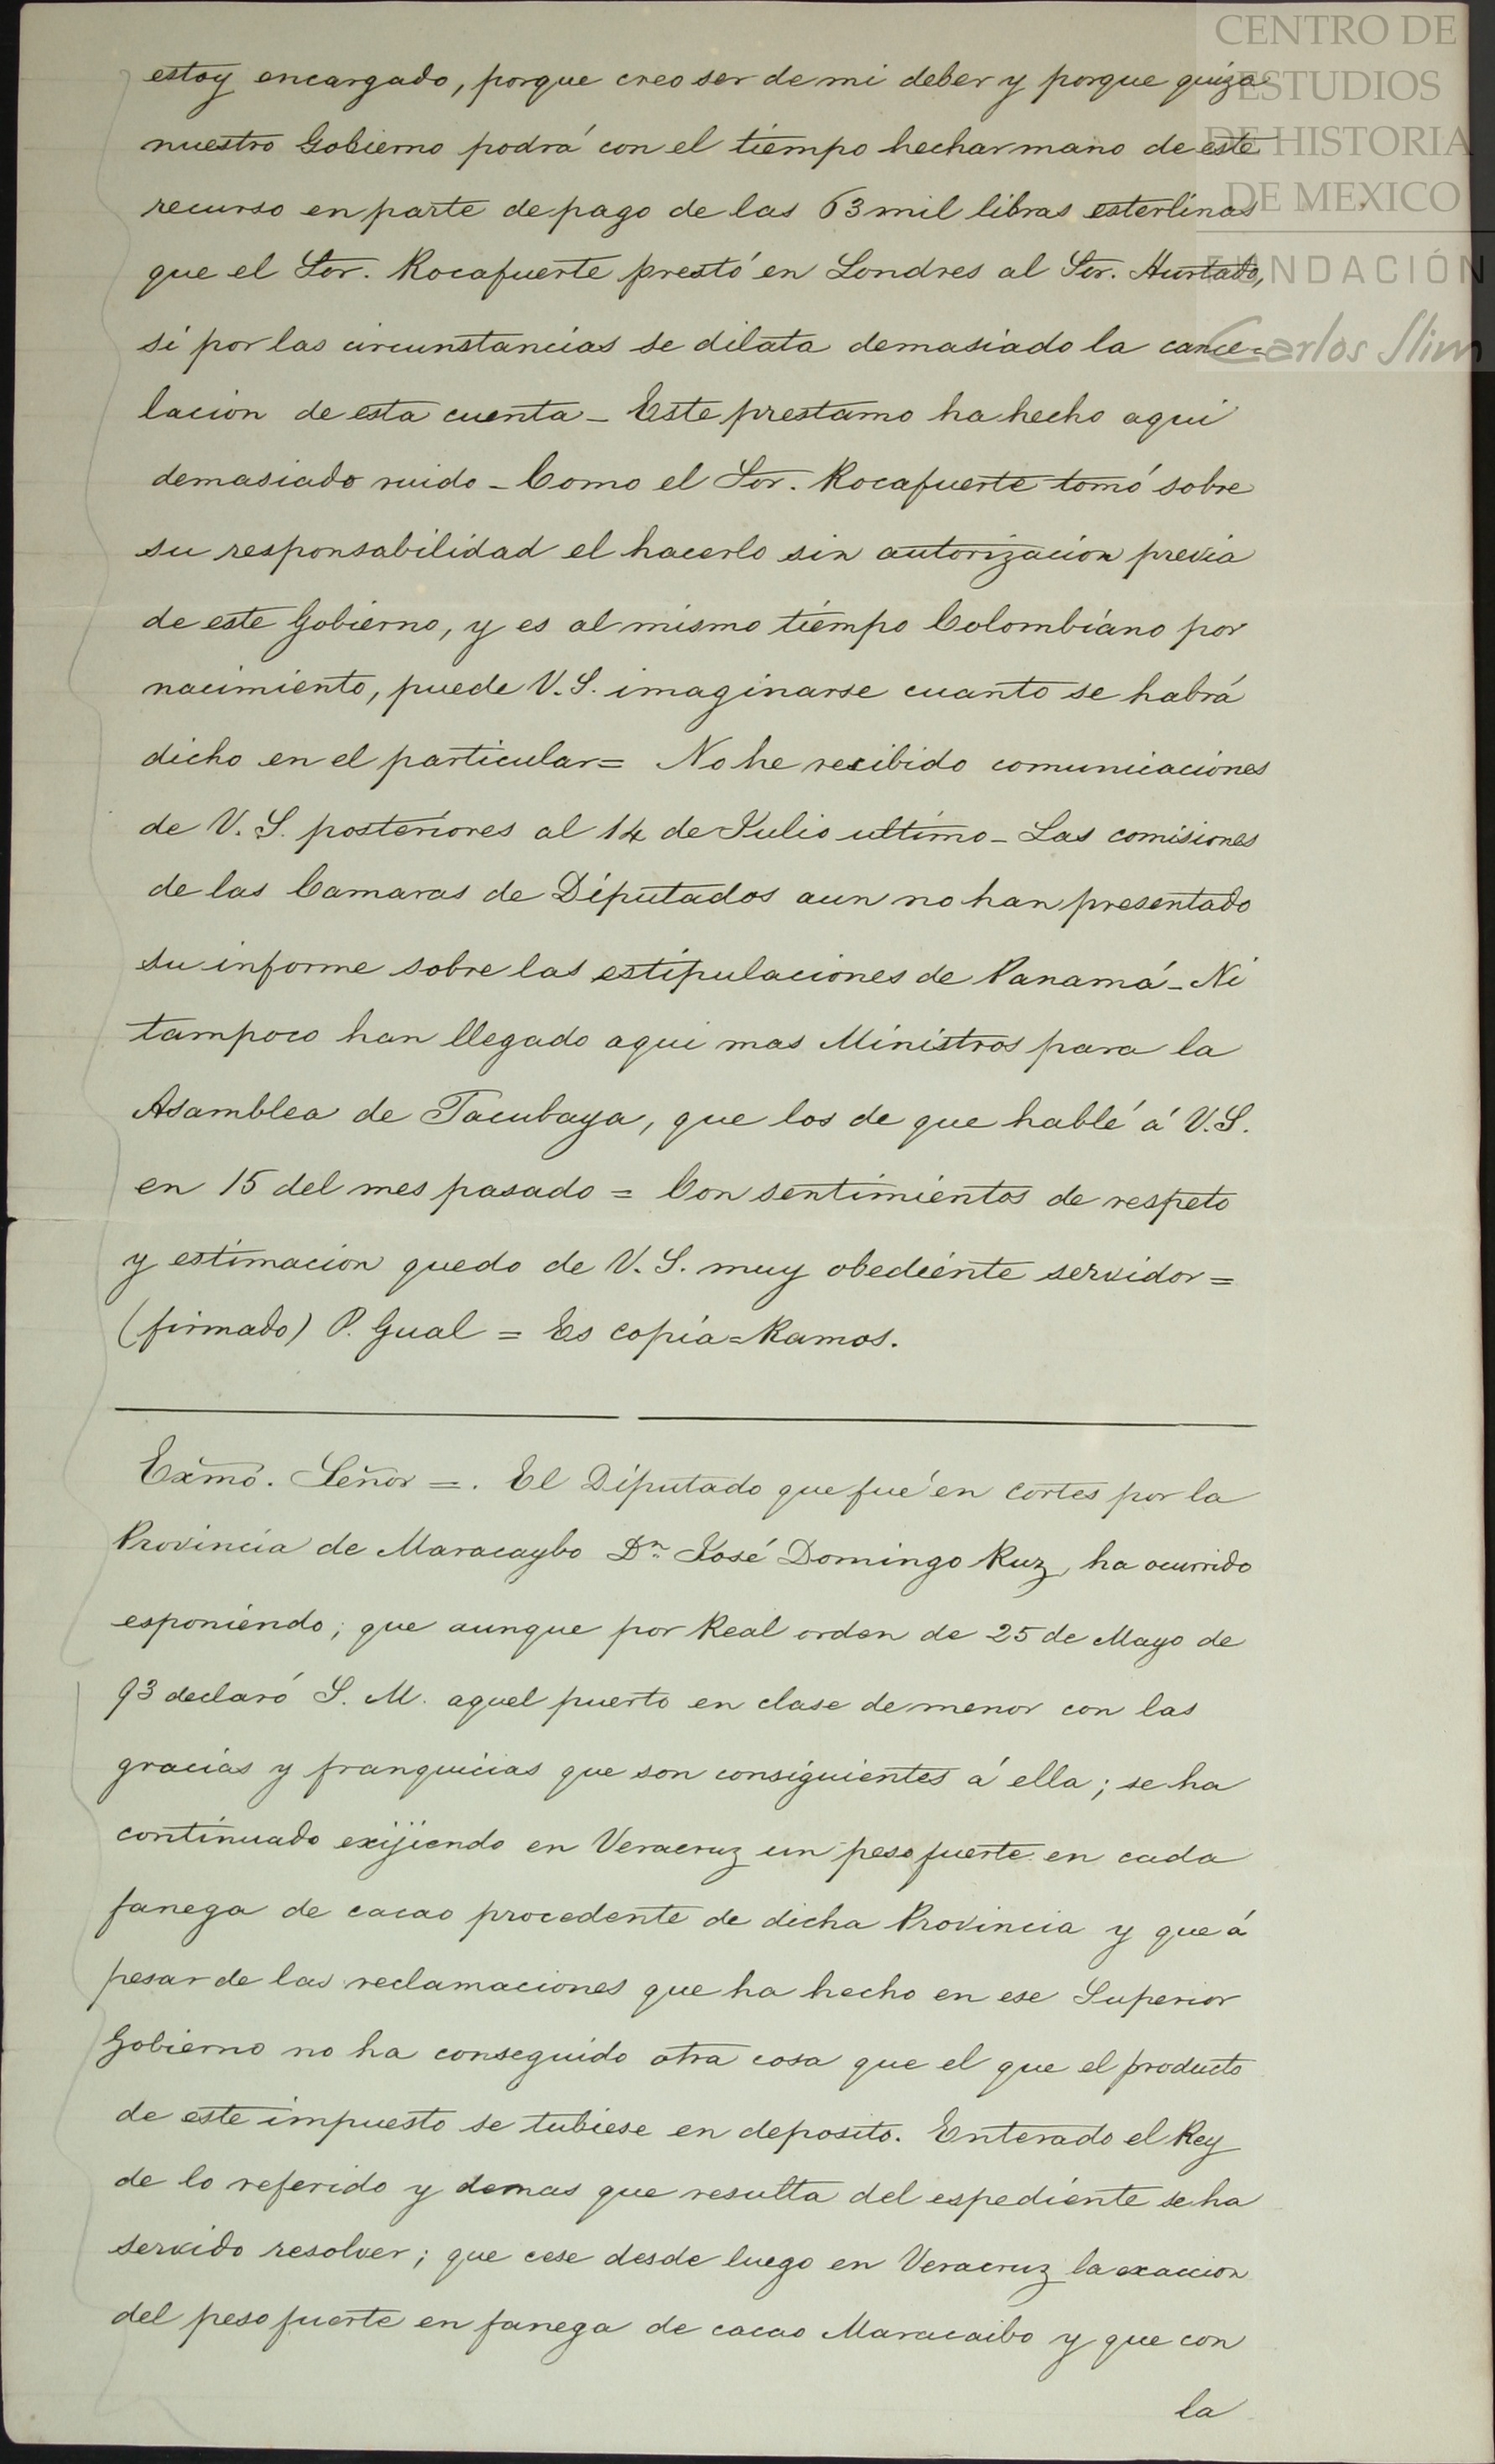 CENTRO DE
ESTUDIOS
DE HISTORIA
DE MEXICO
FUNDACIÓN
Carlos Slim
estoy encargado, porque creo ser de mi deber y porque quiza
nuestro Gobierno podrá con el tiempo hechar mano de este
recurso en parte de pago de las 63 mil libras esterlinas
que el Sor. Rocafuerte prestó en Londres al Sor. Hurtado,
si por las circunstancias se dilata demasiado la cance-
lacion de esta cuenta - Este prestamo ha hecho aqui
demasiado ruido - Como el Sor. Rocafuerte tomó sobre
su responsabilidad el hacerlo sin autorizacion previa
de este Gobierno, y es al mismo tiempo Colombiano por
nacimiento, puede V. S. imaginarse cuanto se habrá
dicho en el particular = No he recibido comunicaciones
de V. S. posteriores al 14 de Julio ultimo - Las comisiones
de las Camaras de Diputados aun no han presentado
su informe sobre las estipulaciones de Panamá - Ni
tampoco han llegado aqui mas Ministros para la
Asamblea de Tacubaya, que los de que hablé á V. S.
en 15 del mes pasado = Con sentimientos de respeto
y estimacion quedo de V. S. muy obediente servidor =
(firmado) P. Gual = Es copia = Ramos.
Exmo. Señor =. El Diputado que fué en cortes por la
Provincia de Maracaybo Dn. José Domingo Ruz, ha ocurrido
esponiendo; que aunque por Real orden de 25 de Mayo de
93 declaró S. M. aquel puerto en clase de menor con las
gracias y franquicias que son consiguientes á ella; se ha
continuado exijiendo en Veracruz un peso fuerte en cada
fanega de cacao procedente de dicha Provincia y que á
pesar de las reclamaciones que ha hecho en ese Superior
Gobierno no ha conseguido otra cosa que el que el producto
de este impuesto se tubiese en deposito. Enterado el Rey
de lo referido y demas que resulta del espediente se ha
servido resolver; que cese desde luego en Veracruz la exaccion
del peso fuerte en fanega de cacao Maracaibo y que con
la